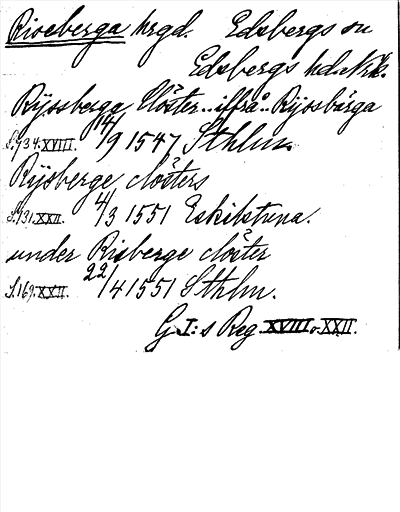 Riseberga hrgd. Edsbergs sn
Edsbergs hd. Nrk.
Rijssberga Clöster.. iffrå.. Rijosbärga
S.734.XVIII. 14/9 1547 Sthlm.
Rijsberge clösters
S.131.XXII. 4/3 1551 Eskilstuna.
under Risberge clöster
S.169.XXII. 22/4 1551 Sthlm.
G.I:s Reg. XVIII o. XXII.